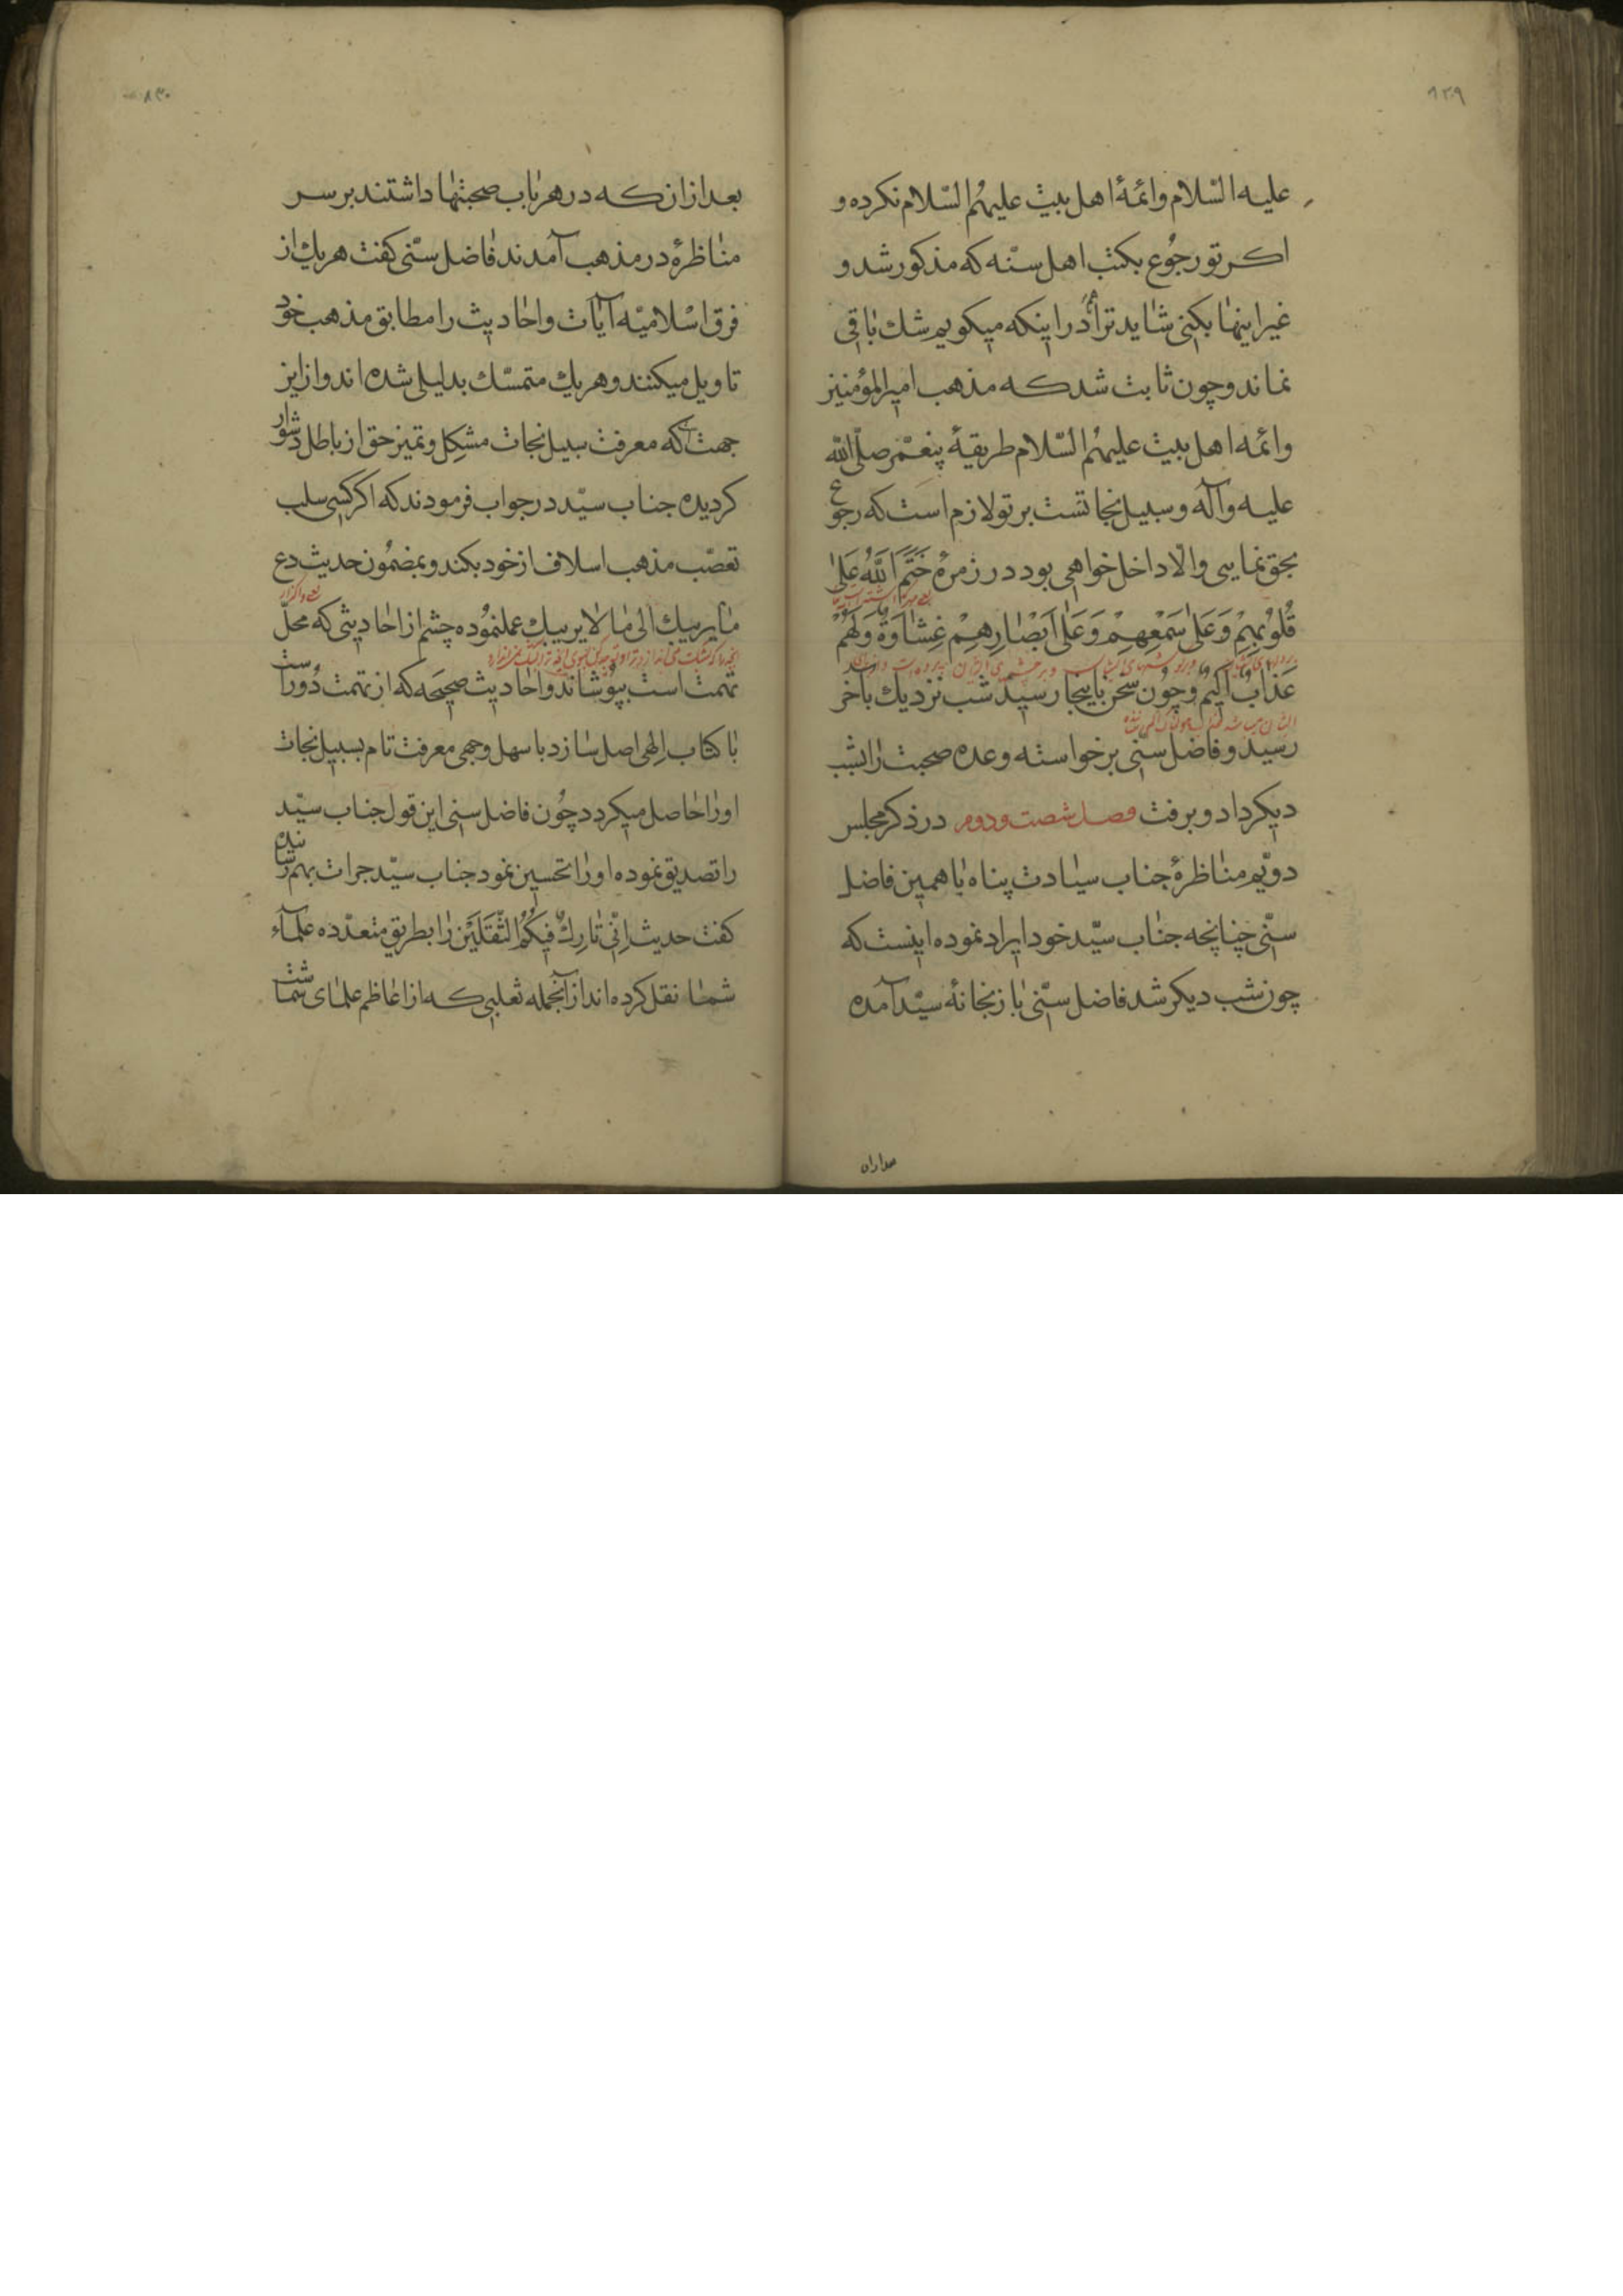 ۸۲۹
علیه السّلام وائمّهٔ اهل بیت علیهُم السّلام نکرده و
اکر تو رجُوع بکتب اهل سنّه که مذکور شد و
غیر اینها بکنی شاید ترا در اینکه میکویم شك باقی
نماند و چون ثابت شد که مذهب امیرالمؤمنین
وائمه اهل بیت علیهُم السّلام طریقهٔ پیغمّبر صلّی الله
علیه وآله و سبیل نجاتست بر تو لازم است که رجوع
بحق نمایی والّا داخل خواهی بود در زمرهٔ خَتَمَ اللّٰهُ عَلیٰ
قُلُوبِهِمْ وَعَلیٰ سَمْعِهِمْ وَعَلیٰ اَبْصٰارِهِمْ غِشٰاوَةٌ وَلَهُمْ
عَذٰابٌ اَلیٖمٌ وچون سخن باینجا رسید شب نزدیك بآخر
رسید و فاضل سنی برخواسته وعده صحبت رابشب
دیکر داد و برفت فصل شصت و دوم در ذکر مجلس
دویّم مناظرهٔ جناب سیادت پناه با همین فاضل
سنّی چنانچه جناب سیّد خود ایراد نموده اینست که
چون شب دیکر شد فاضل سنّی باز بخانهٔ سیّد آمده
۸۳۰
بعد ازان که در هر باب صحبتها داشتند بر سر
مناظرهٔ در مذهب آمدند فاضل سنّی کفت هریك از
فرق اسْلامیّه آیات واحادیث را مطابق مذهب خود
تاویل میکنند وهریك متمسّك بدلیلی شده اند و ازین
جهت که معرفت سبیل نجات مشکل و تمیز حق از باطل دشوار
کردیده جناب سیّد در جواب فرمودند که اکر کسی سلب
تعصّب مذهب اسلاف از خود بکند و بمضمُون حدیث دع
مایریبك الی ما لایریبك عمل نمُوده چشم از احادیثی که محلّ
تهمت است بپوشاند واحادیث صحیحه که از تهمت دُور است
با کتاب الٰهی اصل سازد باسهل وجهی معرفت تام بسبیل نجات
اورا حاصل میکردد چُون فاضل سنی این قول جناب سیّد
را تصدیق نموده اورا تحسین نمود جناب سیّد جرات بهم رسانده
کفت حدیث اِنّی تٰارِكٌ فیٖکُمُ الثَّقَلَیْنِ را بطریق متعدّده علمآء
شما نقل کرده اند ازآنجمله ثعلبی که از اعاظم علمای شماست